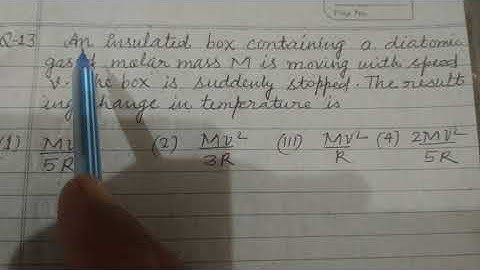 Q-13 An Insulated box containing a diatomic
gas molar mass M is moving with speed
v. The box is suddenly stopped. The result
ing change in temperature is
(1) Mv²/5R (2) Mv²/3R (III) Mv²/R (4) 2Mv²/5R